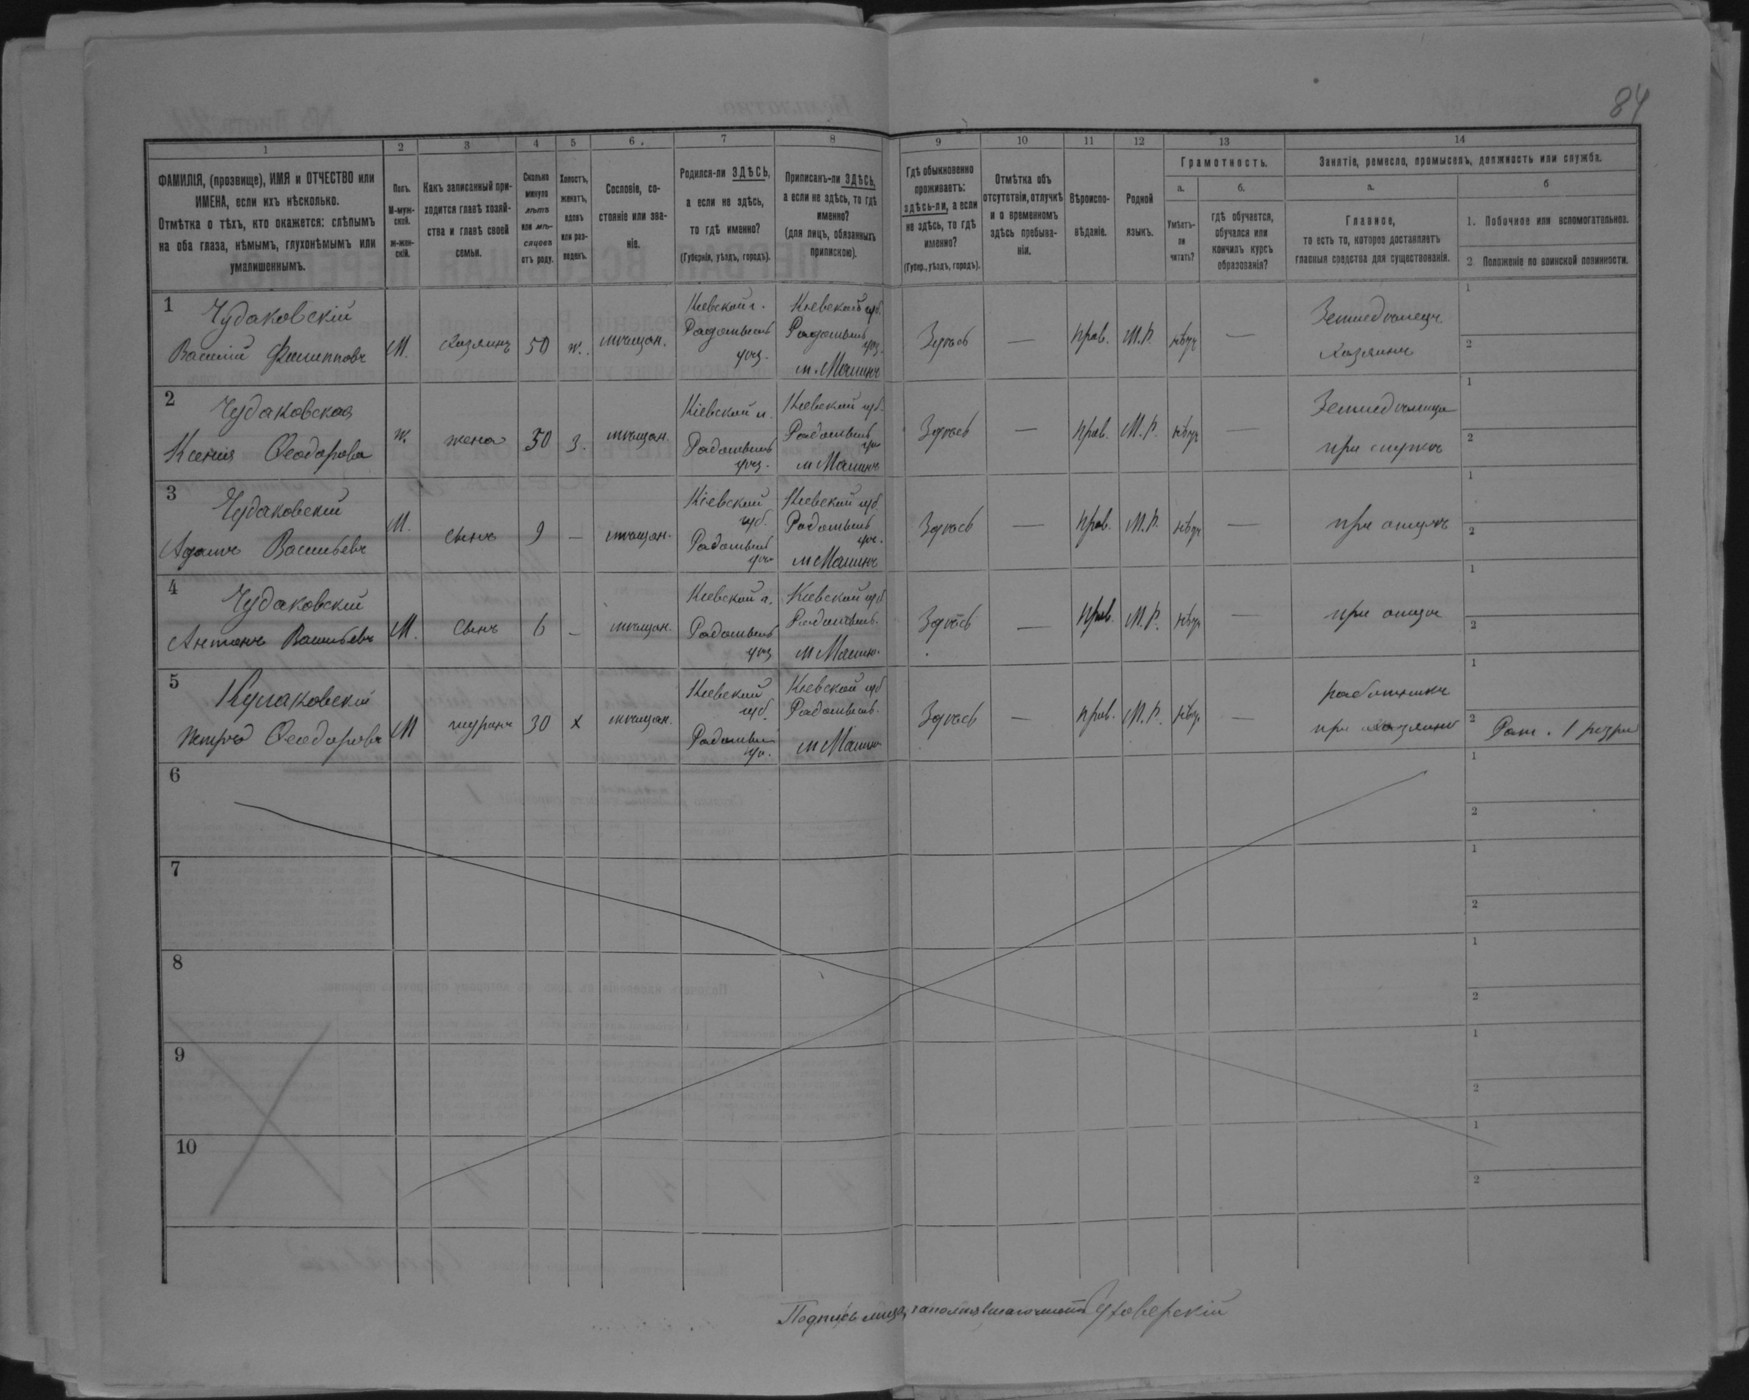 84
1 2 3 4 5 6 7 8 9 10 11 12 13 14
ФАМИЛІЯ, (прозвище), ИМЯ и ОТЧЕСТВО или
ИМЕНА, если ихъ нѣсколько.
Отмѣтка о тѣхъ, кто окажется: слѣпымъ
на оба глаза, нѣмымъ, глухонѣмымъ или
умалишеннымъ.
Полъ.
М-муж-
ской.
ж-жен-
скій.
Какъ записанный при-
ходится главѣ хозяй-
ства и главѣ своей
семьи.
Сколько
минуло
лѣтъ
или мѣ-
сяцевъ
отъ роду.
Холостъ,
женатъ,
вдовъ
или раз-
веденъ.
Сословіе, со-
стояніе или зва-
ніе.
Родился-ли ЗДѢСЬ,
а если не здѣсь,
то гдѣ именно?
(Губернія, уѣздъ, городъ).
Приписанъ-ли ЗДѢСЬ,
а если не здѣсь, то гдѣ
именно?
(для лицъ, обязанныхъ
припискою).
Гдѣ обыкновенно
проживаетъ:
здѣсь-ли, а если
не здѣсь, то гдѣ
именно?
(Губер., уѣздъ, городъ).
Отмѣтка объ
отсутствіи, отлучкѣ
и о временномъ
здѣсь пребыва-
ніи.
Вѣроиспо-
вѣданіе.
Родной
языкъ.
Грамотность.
а. б.
Умѣетъ-
ли
читать?
гдѣ обучается,
обучался или
кончилъ курсъ
образованія?
Занятіе, ремесло, промыселъ, должность или служба.
а. б
Главное,
то есть то, которое доставляетъ
главныя средства для существованія.
1. Побочное или вспомогательное.
2 Положеніе по воинской повинности.
1 Чудаковскій
Василій Филипповъ
М. хозяинъ 50 ж. мѣщан.
Кіевской г.
Радомысль
уѣз.
Кіевской губ.
Радомысль
уѣз.
м. Малинъ
Здѣсь — прав. М.Р. нѣтъ —
Земледѣлецъ
хозяинъ
1
2
2 Чудаковская
Ксенія Ѳеодорова
ж. жена 50 З. мѣщан.
Кіевской г.
Радомысль
уѣз.
Кіевской губ.
Радомысль
уѣз
м Малинъ
Здѣсь — прав. М.Р. нѣтъ —
при мужѣ
1
2
3 Чудаковскій
Адамъ Васильевъ
М. сынъ 9 — мѣщан.
Кіевской
губ.
Радомысль
уѣз
Кіевской губ.
Радомысль
уѣз.
м Малинъ
Здѣсь — прав. М.Р. нѣтъ —
при отцѣ
1
2
4 Чудаковскій
Антонъ Васильевъ
М. сынъ 6 — мѣщан.
Кіевской г.
Радомысль
уѣз
Кіевской губ
Радомысль.
м Малин.
Здѣсь — прав. М.Р. нѣтъ —
при отцѣ
1
2
5 Кулаковскій
Петръ Ѳеодоровъ
М шуринъ 30 х мѣщан.
Кіевской
губ.
Радомысль
уѣ.
Кіевской губ
Радомысль.
м Малин
Здѣсь — прав. М.Р. нѣтъ —
работникъ
при хозяинѣ
1
2 Рат. 1 разря
6 1
2
7 1
2
8 1
2
9 1
2
10 1
2
Подпись лица, заполнявшаго листъ